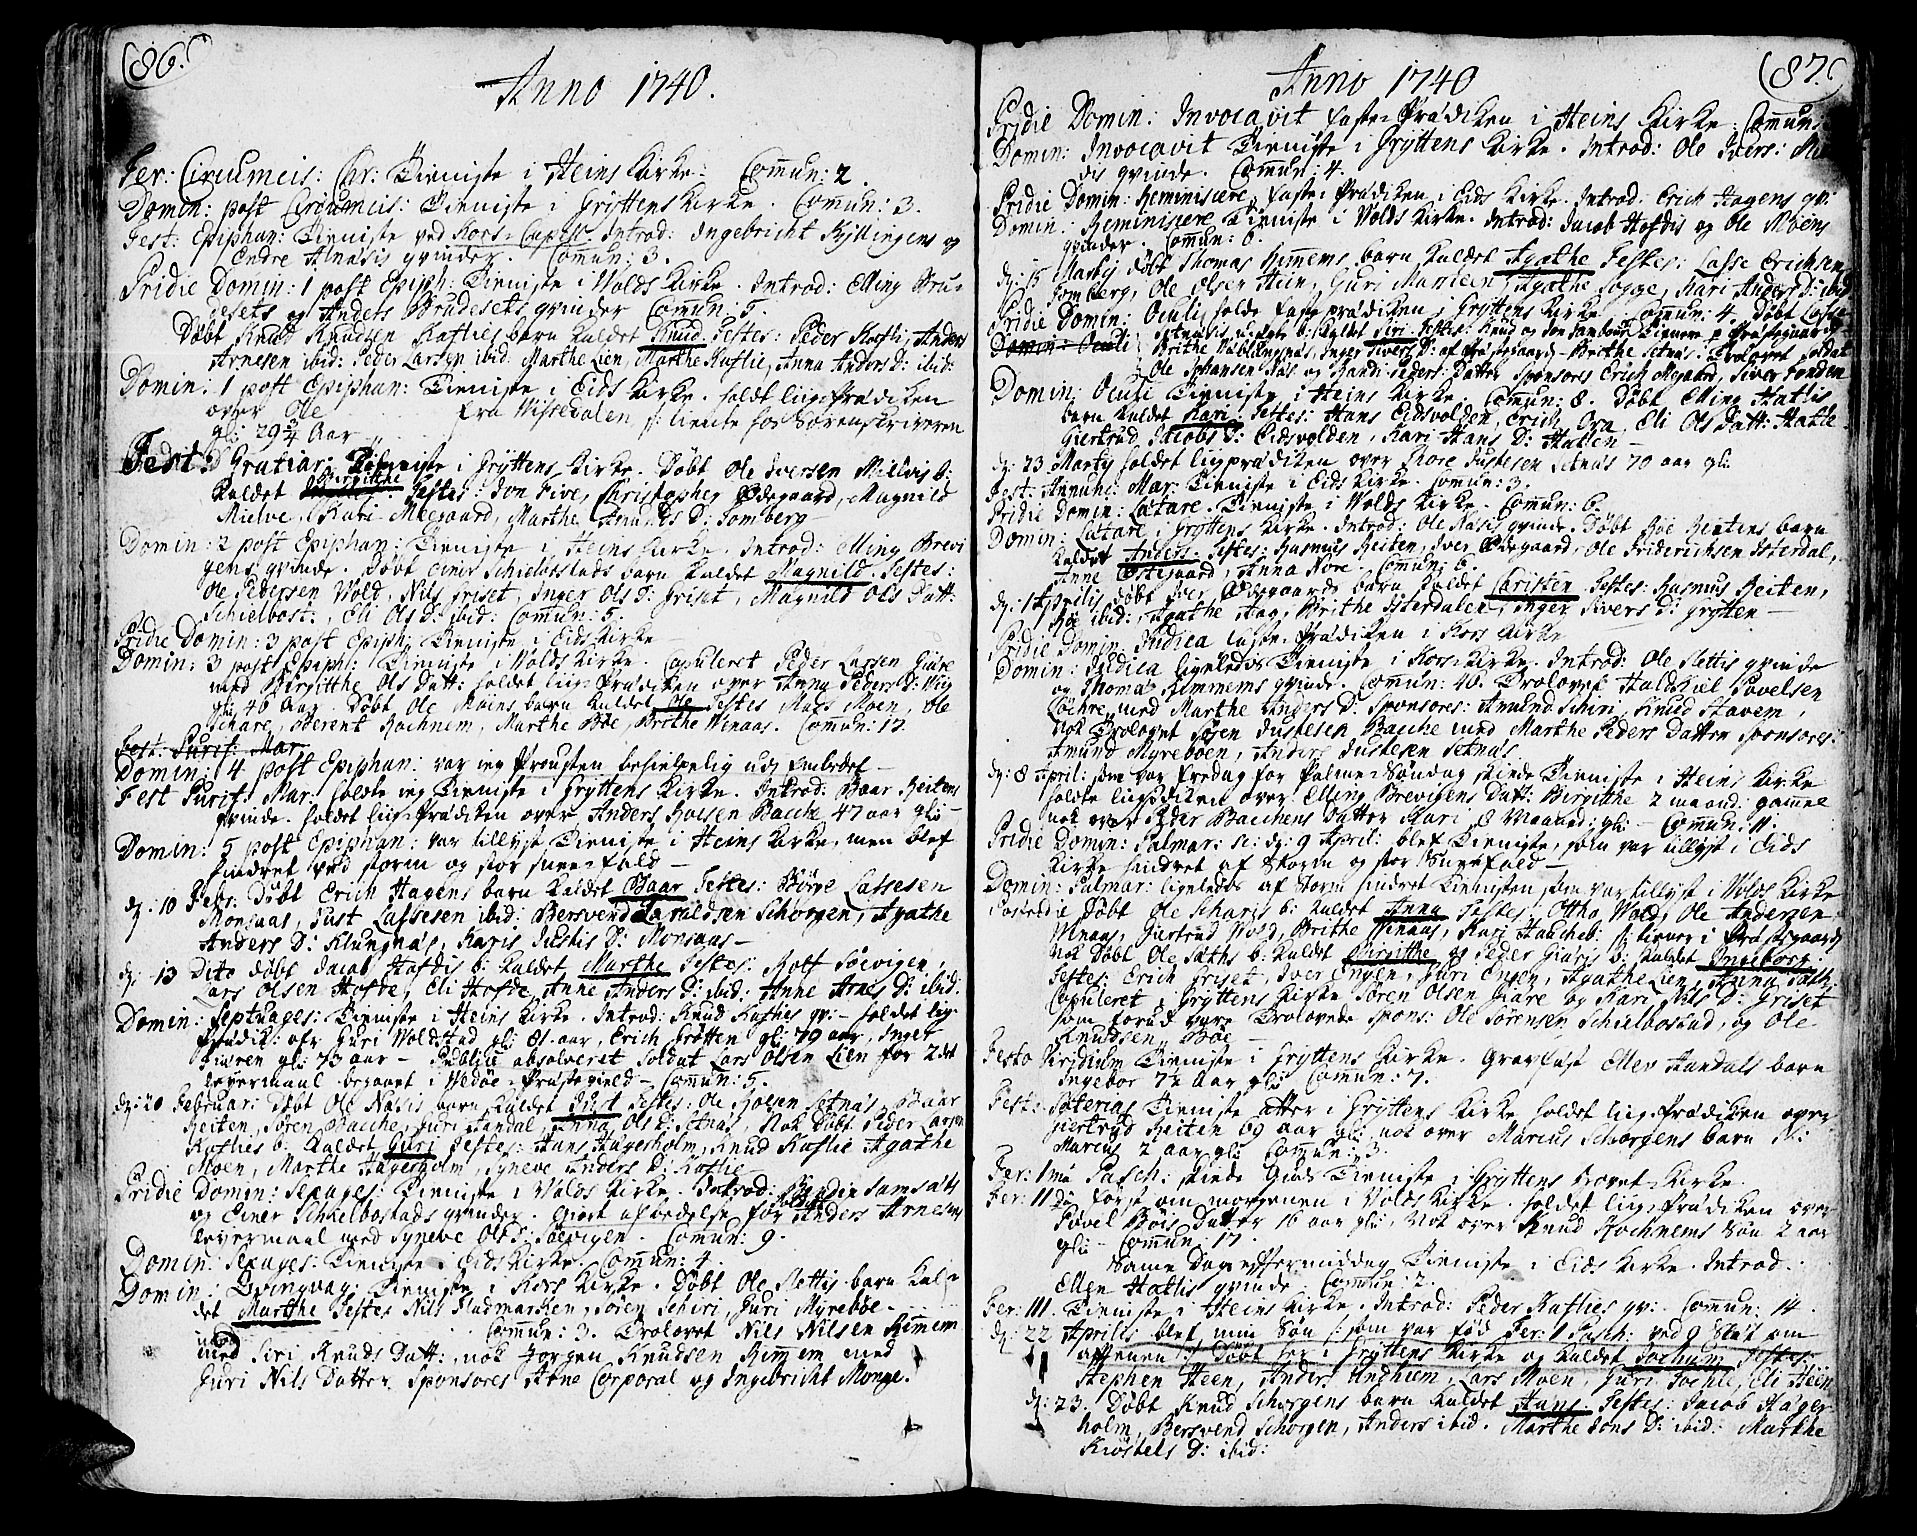 86.
Anno 1740.
Fer: Circumcis: Chr: Tieniste i Heins Kirke. Com̄un: 2.
Domin: post Circumcis: Tieniste i Gryttens Kirke. Com̄un: 3.
Fest: Epiphan: Tieniste ved Kors-Capell. Introd: Ingebricht Kyllingens og
Endre qvinder. Com̄un: 3.
Pridie Domin: 1 post Epiph: Tieniste i Volds Kirke. Introd: Elling Bru-
desets og Anders Brudesets qvinder Com̄un: 5.
Døbt Knud Knudsen Kaflies barn kaldet Knud Testes: Peder Anders
Arnesen ibid: Peder Larsen ibid. Marthe Lien, Marthe Kaflie, Anna Anders D: ibid:
Domin: 1 post Epiphan: Tieniste i Eids Kirke. holdt liigprædiken
over Ole fra Vissedalen /: tiente hos Sorenskriveren
gl: 29¾ Aar
Fest: Gratiar: Tieniste i Gryttens Kirke. Døbt Ole Iversen Mielvis b:
kaldet Birgitthe Testes: Jon Five, Christopher Ødegaard, Magnild
Mielve, Kari Moegaard, Marthe Amunds D: Somberg
Domin: 2 post Epiphan: Tieniste i Heins Kirke. Introd: Elling Brevi
gens qvinde. Døbt Einer Schielbostads barn kaldet Magnild. Testes:
Ole Pedersen Vold, Nils Griset, Inger Ols D: Griset, Magnild Ols Datt:
Schielbost:, Eli Ols D: ibid: Com̄un: 5.
Pridie Domin: 3 post Epiph: Tieniste i Eids Kirke
Domin: 3 post Epiph: Tieniste i Volds Kirke. Copuleret Peder Larsen Giære
med Birgitthe Ols Datt: holdet liig-Prædiken over Anna Peders D:
gl: 40 Aar. Døbt Ole Moens barn kaldet Ole Testes Mats Moen, Ole
Schare, Berent Kochnem, Marthe Bøe, Brithe Venaas. Com̄un: 13.
Fest: Purif: Mar
Domin: 4 post Epiphan: var ieg Prousten behielpelig udj Embedet
Fest Purif: Mar. holdte ieg Tieniste i Gryttens Kirke. Introd: Baar Reitens
qvinde. holdet liig-Prædiken over Anders Holsen Bache 47 aar gl:
Domin: 5 post Epiphan: var tillyst Tieniste i Heins Kirke, men blef
hindret ved storm og stor snee-fald
d: 10 Febr: Døbt Erich Hagens barn kaldet Baar Testes: Børge Lassesen
Monsaas, Just Lassesen ibid: Bersvend Haraldsen Schorgen, Agathe
Anders D: Klungnæs, Karis Justis D: Monsaas
d: 13 Dito døbt Jacob Hofdis b: kaldet Marthe Testes: Rolf Søevigen,
Lars Olsen Hofde, Eli Hofde, Anne Anders D: ibid: Anne Arnes D: ibid:
Domin: Septuages: Tieniste i Heins Kirke. Introd: Knud Kathes qv: holdet lig-
prædik: ofr Guri Voldstad gl: 81 aar, Erich Grøtten gl: 79 aar, Inger
gl: 73 aar – Publice absolveret Soldat Lars Olsen Lien for 2det
leyermaal begaaet i Vedøe-Præstegield. Com̄un: 5.
d: 20 Februar: Døbt Ole Næsis barn kaldet Just Testes: Ole Holsen Setnæs, Baar
Reiten, Søren Bache, Guri Aandal, Anna Ols D: Setnæs, Nok Døbt Peder Larsen
Kaflies b: kaldet Guri Testes: Hans Hagerholm, Knud Kaflie, Agathe
Moen, Marthe Hagerholm, Syneve Anders D: Kaflie
Pridie Domin: Sexages: Tieniste i Volds Kirke. Introd:
og Einer Schielbostads qvinder. Giort afbedelse for Soldat Anders Arnesen
leyermaal med Syneve Ols D: Søevigen. Com̄un: 9.
Domin: Sexages: Tieniste i Eids Kirke. Com̄un: 4.
Domin: Qvinqvag: Tieniste i Kors Kirke. Døbt Ole Slettis barn kal-
det Marthe Testes Nils Fladmarchen, Søren Schiri, Guri Myrebøe.
Com̄un: 3. Trolovet Nils Nilsen Rim̄em
med Siri Knuds Datt:, nok Jørgen Knudsen Rim̄em med
Guri Nils Datter. Sponsores Arne Corporal og Ingebricht Monge.
87.
Anno 1740
Pridie Domin: Invocavit faste-Prædiken i Heins Kirke. Com̄un:
Domin: Invocavit Tieniste i Gryttens Kirke. Introd: Ole Ivers:
dis qvinde. Com̄un: 4.
Pridie Domin: Reminiscere faste-Prædiken i Eids Kirke. Introd: Erich Hagens qv:
Domin: Reminiscere Tieniste i Volds Kirke. Introd: Jacob Hofdis og Ole Moens
qvinder. Com̄un: 6.
d: 15 Martij Døbt Thomas Rim̄ems barn kaldet Agathe Testes: Lasse Erichsen
Somberg, Ole Olsen Hein, Guri Monsen, Agathe Sogge, Kari Anders D: ibid
Pridie Domin: Oculi holdt fasteprædiken i Gryttens Kirke Com̄un: 4. Døbt Lasse
Domin: Oculi b: kaldet Siri Testes: Knud og Jon Tambour Tienere Præstegaard
Brithe Voblungnæs, Inger Sivers D: af Præstegaard, Brithe Setnæs: Trolovet Soldat
Ole Johansen Næs og Randi Peders: Datter Sponsores Erich Mygaard, Siver Sanden
Domin: Oculi Tieniste i Heins Kirke Com̄un: 8. Døbt Elling Hatlis
barn kaldet Kari. Testes: Hans Eidsvolden, Erich Ora, Eli Ols Datt: Hatle
Giertrud Jacobs D: Eidsvolden, Kari Hans D: Hatlen
d: 23 Martij holdet liigprædiken over Thore Justesen Setnæs 70 aar gl:
Fest: Annunc: Mar: Tieniste i Eids Kirke. Com̄un: 3.
Pridie Domin: Lætare. Tieniste i Volds Kirke. Com̄un: 6.
Domin: Lætare i Gryttens Kirke. Introd: Ole Næsis qvinde. Døbt Roe Reitens barn
kaldet Anders. Testes: Rasmus Reiten, Iver Ødegaard, Ole Friderichsen Isterdal,
Anne Østigaard, Anna Nore. Com̄un: 6.
d: 1 Aprilis døbt Iver Ødegaards barn kaldet Christen Testes: Rasmus Reiten,
Roe ibid:, Agathe Aag, Brithe Isterdalen, Inger Sivers D: Grytten
Pridie Domin: Judica faste-Prædiken i Kors Kirke
Domin: Judica ligeledes Tieniste i Kors-Kirke. Introd: Ole Slettis qvinde
og Thomas Rim̄ems qvinde. Com̄un: 40. Trolovet Haldchiel Povelsen
Lochre med Marthe Anders D: Sponsores: Amund Schiri, Knud Stavem,
Nok Trolovet Søren Justesen Basche med Marthe Peders Datter Sponsores:
Amund Myreboen, Anders Justesen Setnæs.
d: 8 April: som var Fredag for Palme-Søndag skeede Tieniste i Heins Kirke
holdte liigprædiken over Elling Brevigens Datt: Birgitthe 2 maan: gammel
nok over Peder Bachens Datter Kari 8 Maaned: gl: – Com̄un: 11.
Pridie Domin: Palmar: sc: d: 9 April: blef Tieniste, som var tillyst i Eids
Kirke hindret af Storm og stor Sneefald
Domin: Palmar: ligeledes af Storm hindret Tienisten, som var tillyst i Volds Kirke
Postridie Døbt Ole Scharis b: kaldet Anna Testes, Otho Vold, Ole Andersen
Venaas, Giertrud Vold, Brithe Venaas, Kari Haucheb: /: tiener i Præstegaard
Nok Døbt Ole Sæths b: kaldet Birgitthe og Peder Giæris b: kaldet Ingeborg.
Testes: Erich Griset, Iver Engen, Guri Engen, Agathe Lien, Anna Sæth
Copuleret i Gryttens Kirke Søren Olsen Giære og Kari Nils D: Griset
som forud vare Trolovede spons: Ole Sørensen Schielbostad, og Ole
Knudsen Bøe
Festo Viridium Tieniste i Gryttens Kirke. Gravfæst Elles Aandals barn
Ingebor 7½ Aar gl: Com̄un: 7.
Fest: Soterias Tieniste atter i Gryttens Kirke holdet liig-Prædiken over
Giertrud Reiten 69 aar gl: nok over Marcus Schorgens barn
Marcus 2 aar gl: Com̄un: 3.
Fer: 1ma Pasch: skeede Guds Tieniste i Gryttens hovet-Kirke.
Fer: 11da først om morgenen i Volds Kirke. holdet liig-Prædiken over
Povel Bøis Datter 16 aar gl:, Nok over Knud Kochnems Søn 2 aar
gl: – Com̄un: 17.
Samme Dag effermiddag Tieniste i Eids Kirke. Introd.
Ellen Hatlis qvinde. Com̄un: 2.
Fer: 111. Tieniste i Heins Kirke. Introd: Peder Kaflies qv: Com̄un: 14.
d: 22 Aprilis blef min Søn /: som var fød Fer: 1 Pasch: ved 9 Slet om
aftenen :/ Døbt her i Gryttens Kirke og kaldet Jochum Testes:
Stephen Heen, Anders Unhiem, Lars Moen, Guri Sochle, Eli Heen
d: 23. Døbt Knud Schorgens barn kaldet Hans. Testes: Jacob Hager-
holm, Bersvend Schorgen, Anders ibid. Marthe Jons D: ibid: Marthe
Kiøstels D: ibid: